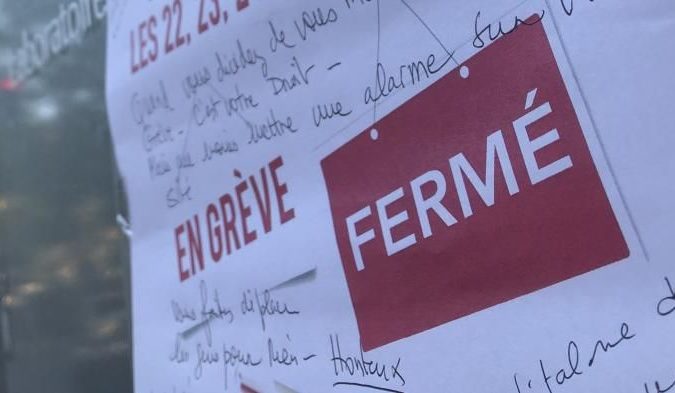 Laboratoire
LES 22, 23, 2
Quand vous décidez de vous
Grève - C'est votre Droit -
Mais que mettre une alarme sur
site
EN GRÈVE
FERMÉ
Vous faites déplacer
les gens pour Rien - Honteux